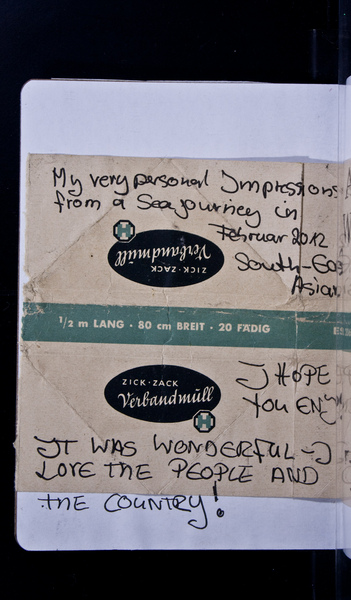 My very personal Impressions
from a Seajourney in
Februar 2012
South-Eas
Asian
Verbandmüll
ZICK-ZACK
1/2 m LANG · 80 cm BREIT · 20 FÄDIG
ZICK-ZACK
Verbandmüll
I HOPE
YOU ENJ
IT WAS WONDERFUL - I
LOVE THE PEOPLE AND
THE COUNTRY!